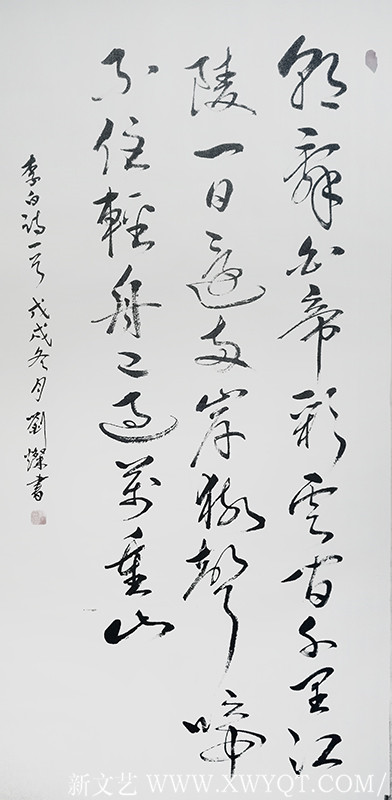 朝辞白帝彩云间千里江
陵一日还两岸猿声啼
不住轻舟已过万重山
李白诗一首 戊戌冬月 劉燦書
新文艺 WWW.XWYQT.COM/